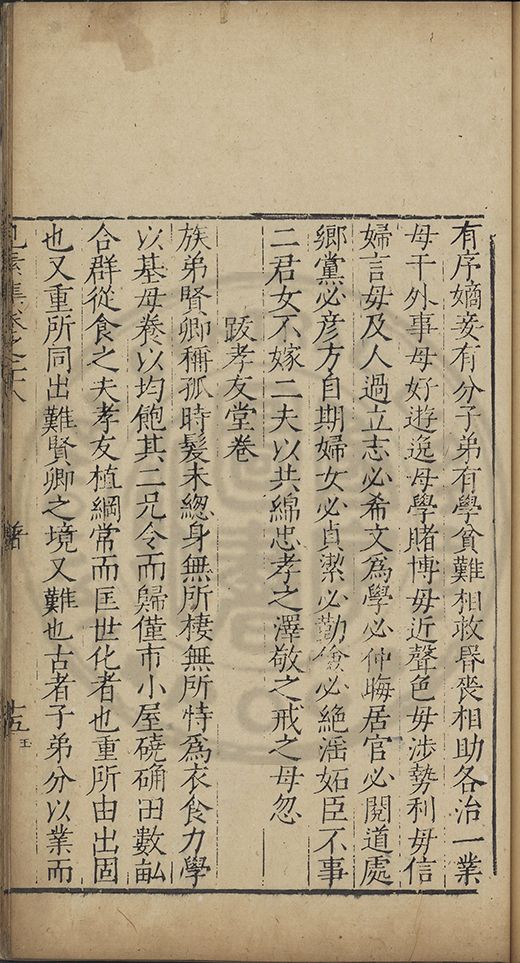 有序嫡妾有分子弟有學貧難相救㛰喪相助各治一業
毋干外事毋好遊逸毋學賭博毋近聲色毋涉勢利毋信
婦言毋及人過立志必希文為學必仲晦居官必閱道處
鄉黨必彥方自期婦女必貞潔必勤儉必絕淫妬臣不事
二君女不嫁二夫以共綿忠孝之澤敬之戒之毋忽
跋孝友堂卷
族弟賢卿稱孤時髮未緫身無所棲無所恃為衣食力學
以基母養以均飽其二兄令而歸僅市小屋磽确田數畝
合群從食之夫孝友植綱常而匡世化者也重所由出固
也又重所同出難賢卿之境又難也古者子弟分以業而
集卷之六
十五